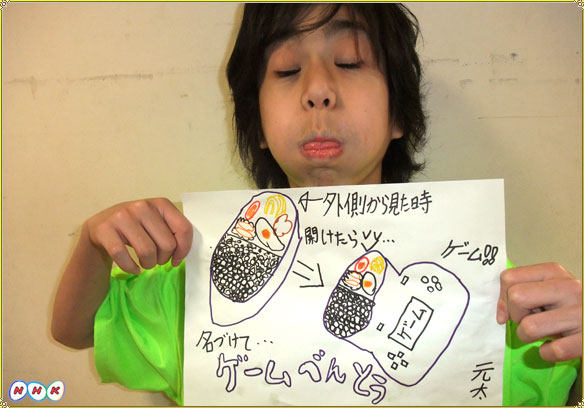 外側から見た時
開けたら…
ゲーム
ゲーム
名づけて…
ゲームべんとう
元太
NHK